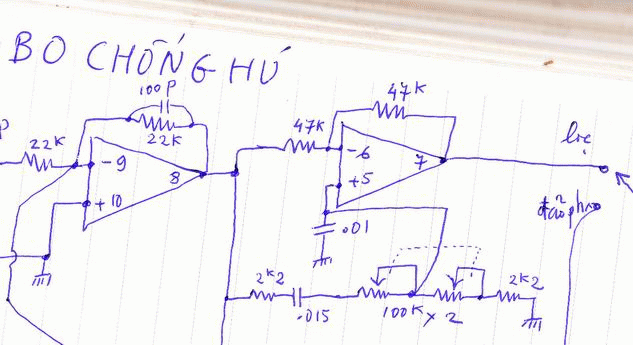 BO CHỐNG HÚ
100P
47K
P
22K
22K
47K
-9
8
+10
-6
7
+5
lọc
.01
đảo pha
2K2
.015
100K x 2
2K2